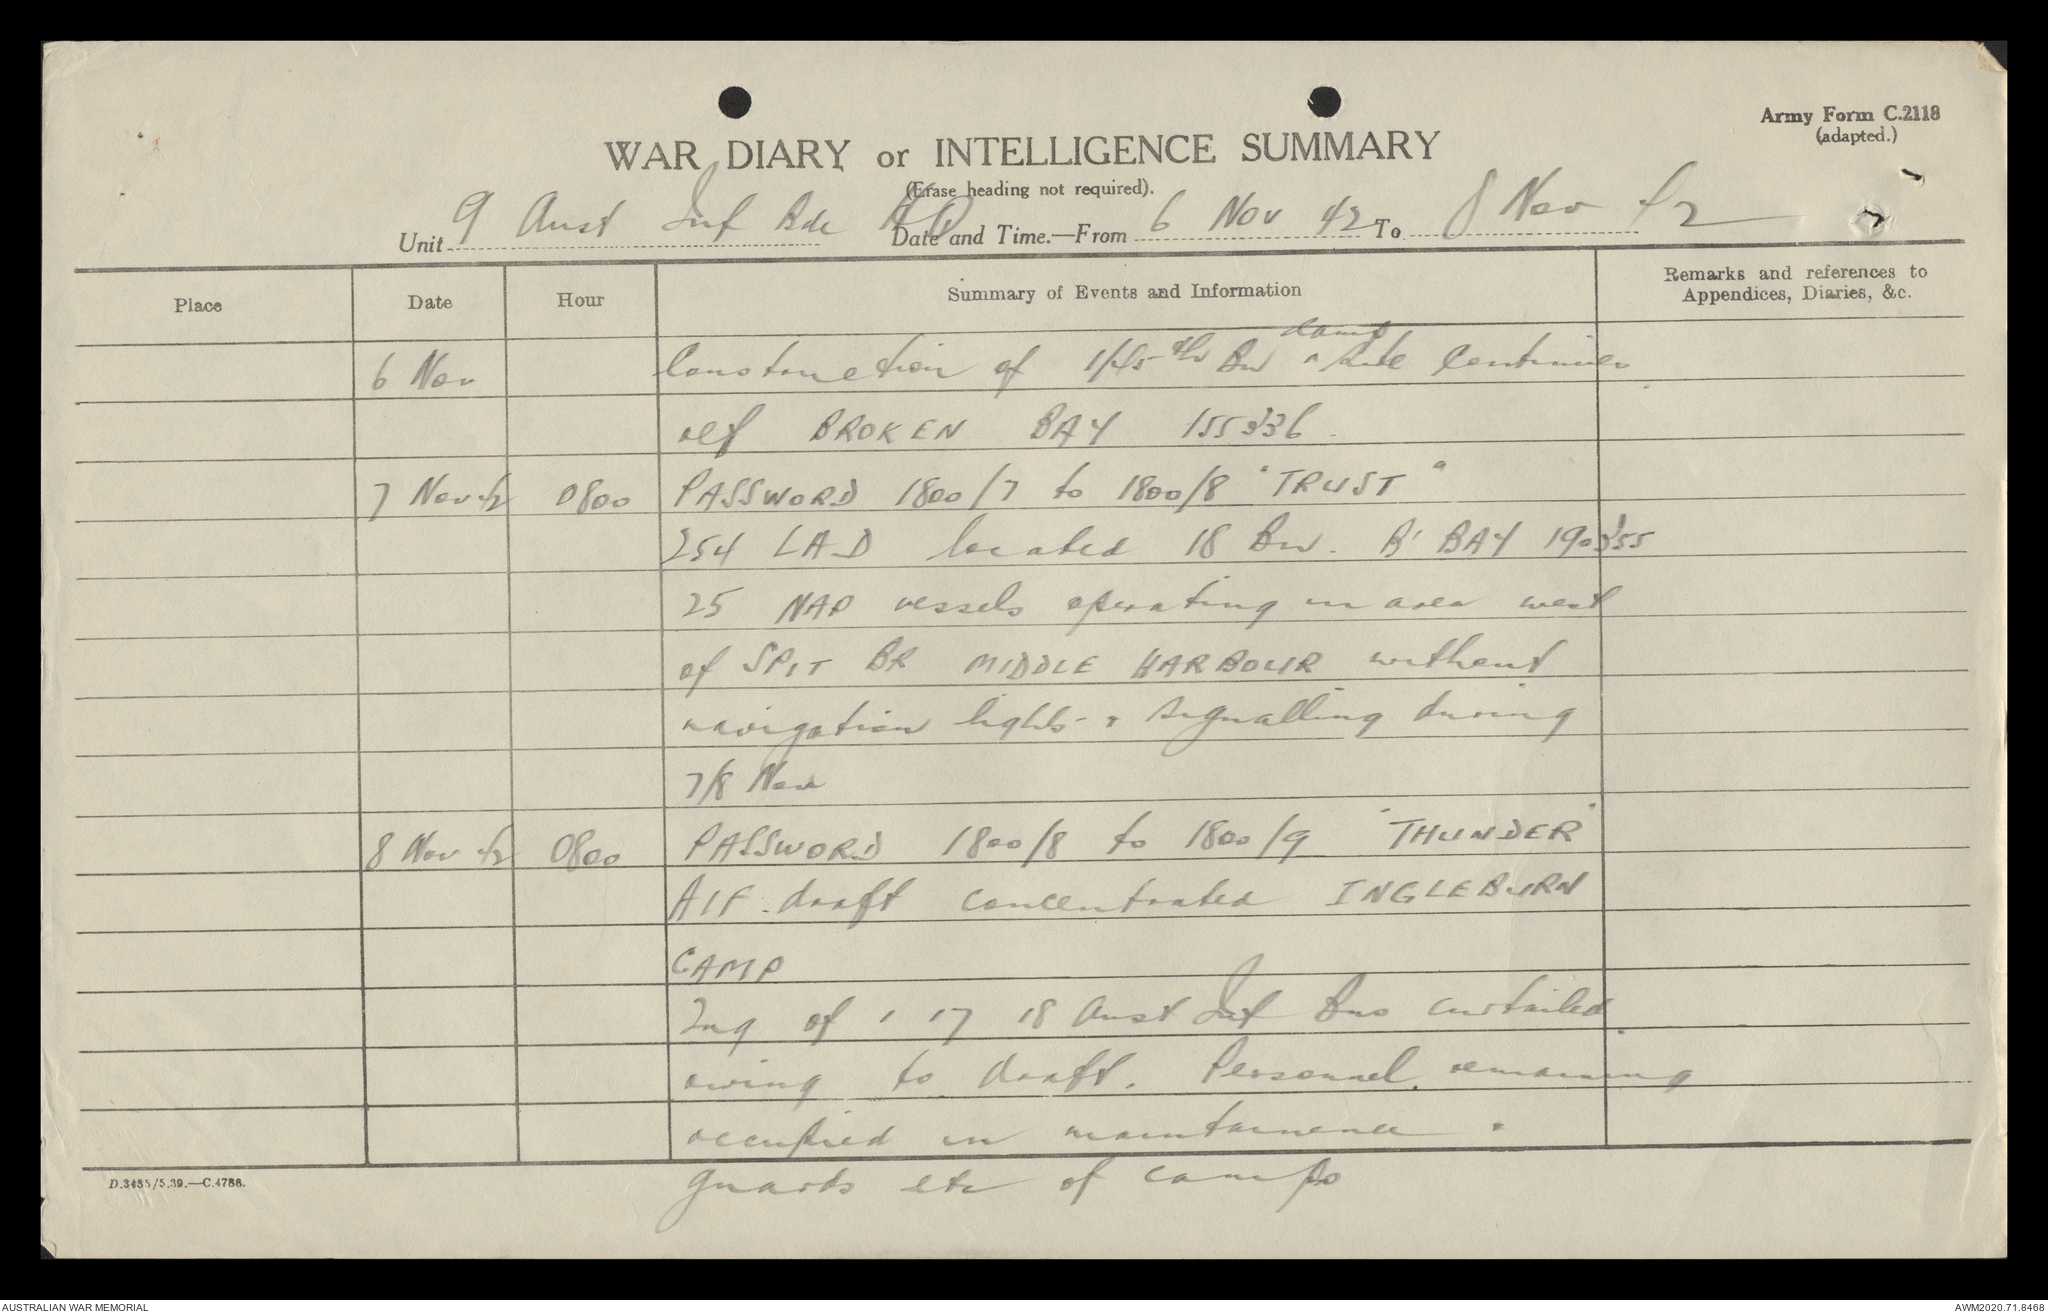 Army Form C.2118
(adapted.)
WAR DIARY or INTELLIGENCE SUMMARY
(Erase heading not required).
Unit 9 Aust Inf Bde HQ Date and Time.—From 6 Nov 42 To 8 Nov 42
Place Date Hour Summary of Events and Information Remarks and references to Appendices, Diaries, &c.
6 Nov Construction of 1/45th Bn camp site continues
ref BROKEN BAY 155336.
7 Nov 42 0800 PASSWORD 1800/7 to 1800/8 "TRUST"
254 LAD located 18 Bn. B' BAY 190355
25 NAP vessels operating in area west
of SPIT BR MIDDLE HARBOUR without
navigation lights & signalling during
7/8 Nov
8 Nov 42 0800 PASSWORD 1800/8 to 1800/9 "THUNDER"
AIF draft concentrated INGLEBURN
CAMP
Tng of 1 17 18 Aust Inf Bns curtailed
owing to draft. Personnel remaining
occupied in maintainence &
guards etc of camps
D.3485/5.39.—C.4788.
AUSTRALIAN WAR MEMORIAL
AWM2020.71.8468